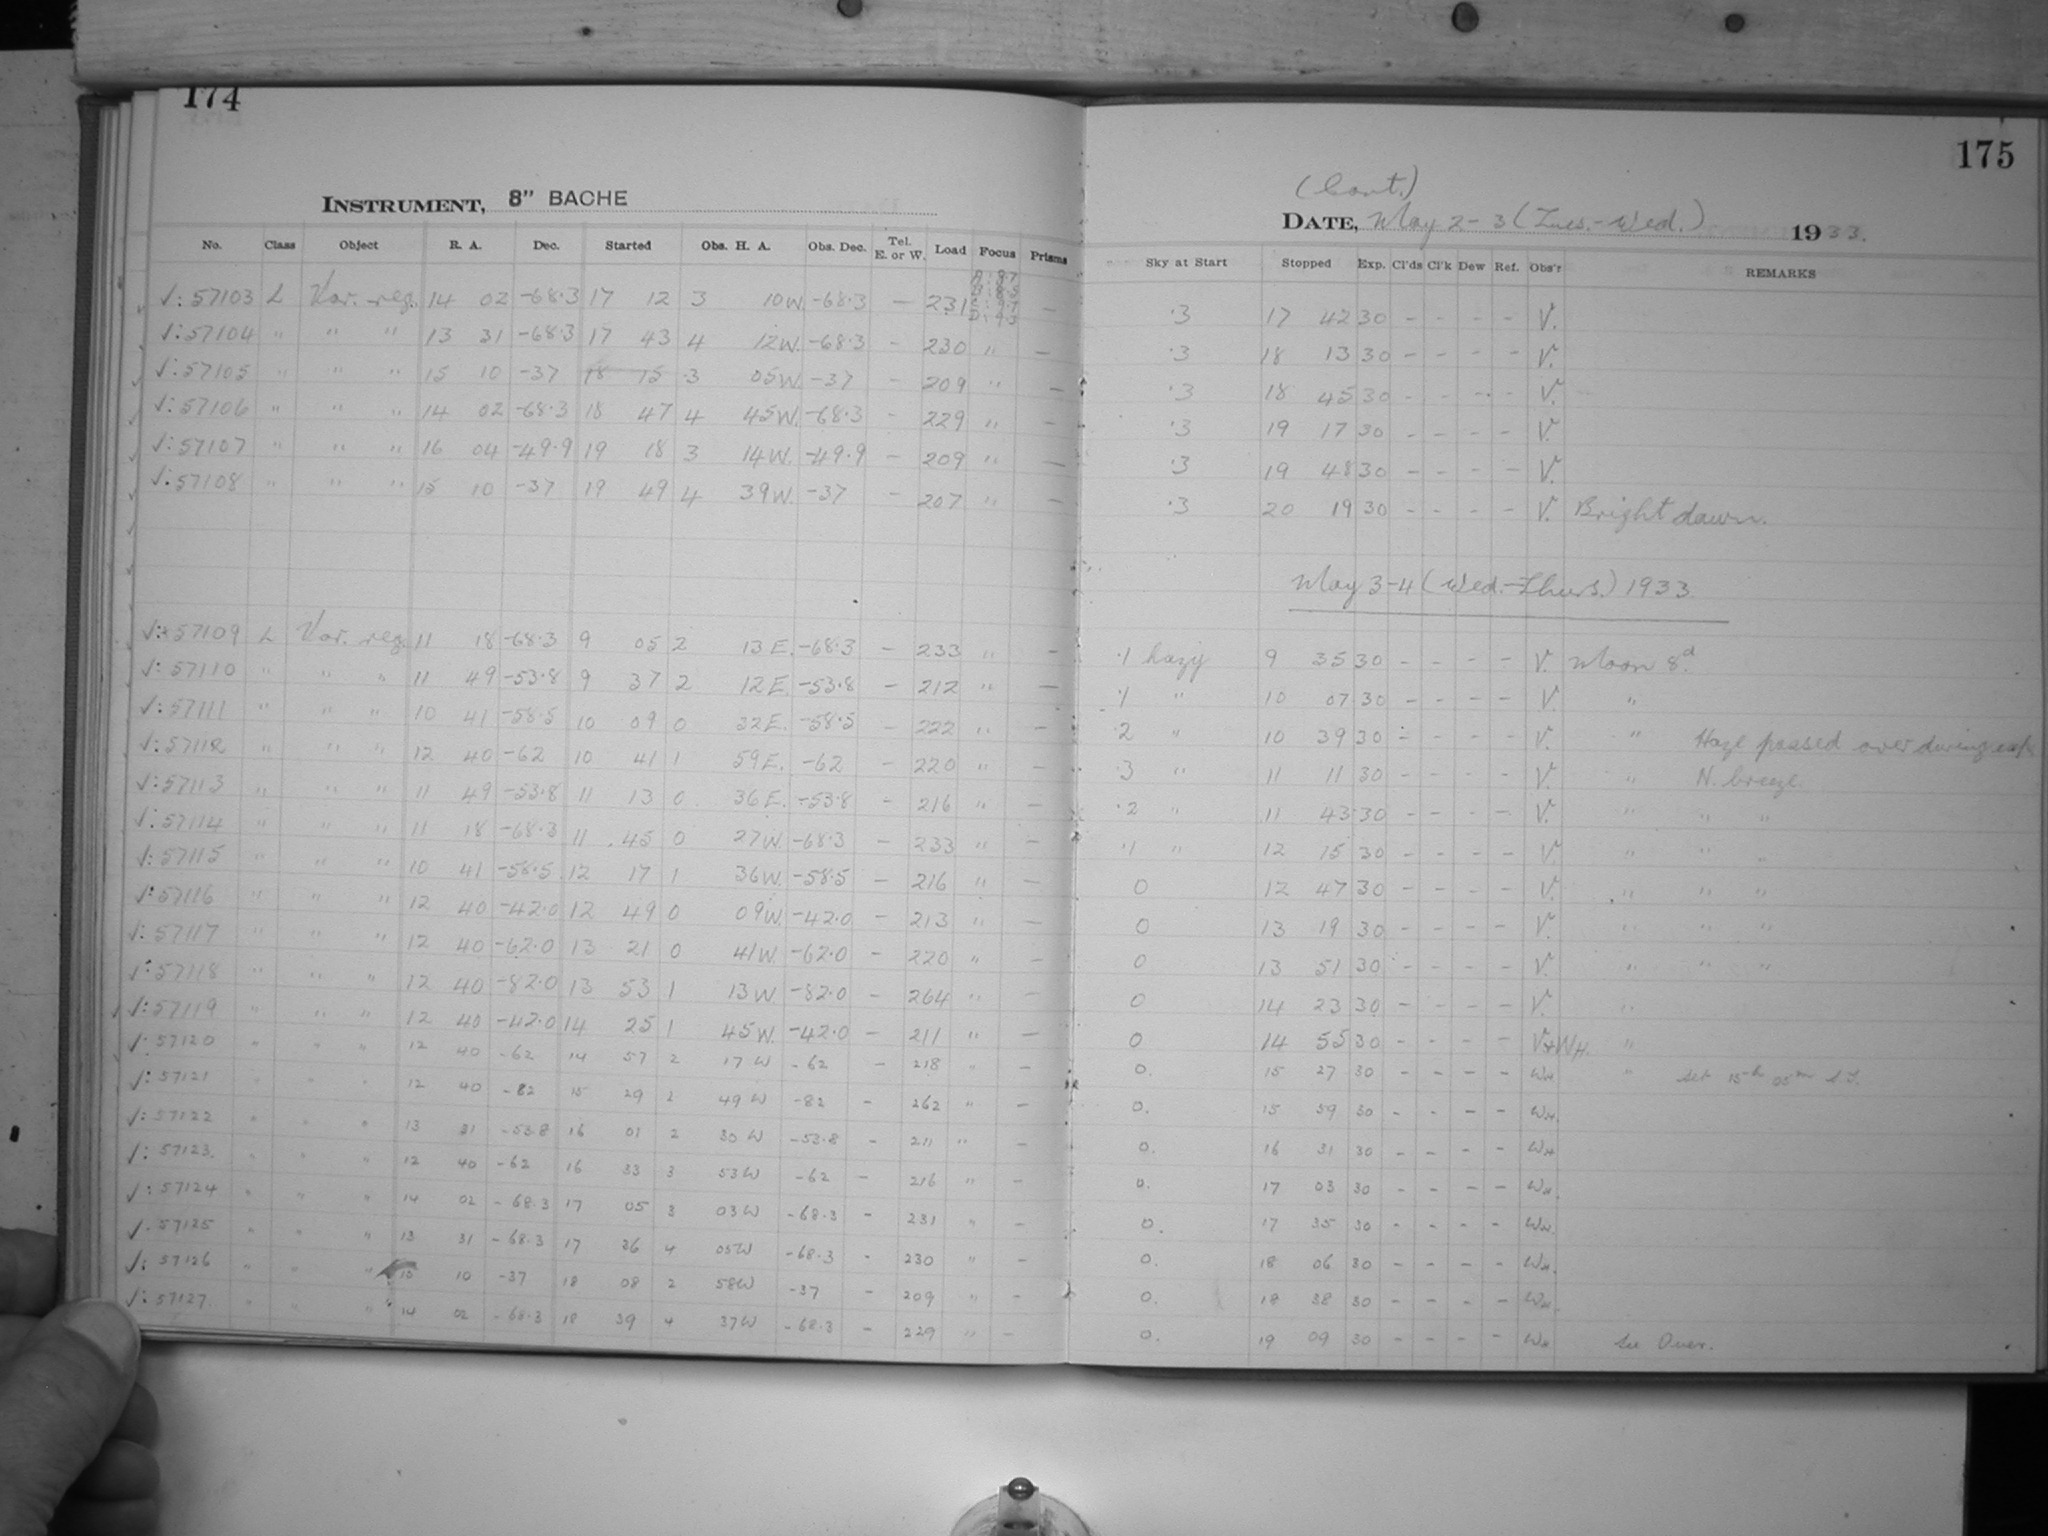 174
175
INSTRUMENT, 8" BACHE
(Cont.)
DATE, May 2-3 (Tues.-Wed.) 1933.
No. Class Object R. A. Dec. Started Obs. H. A. Obs. Dec. Tel. E. or W. Load Focus Prisms Sky at Start Stopped Exp. Cl'ds Cl'k Dew Ref. Obs'r REMARKS
√: 57103 L Var. reg. 14 02 -68.3 17 12 3 10W -68.3 - 231 - .3 17 42 30 - - - - V.
√: 57104 " " " 13 31 -68.3 17 43 4 12W. -68.3 - 230 " - .3 18 13 30 - - - - V.
√: 57105 " " " 15 10 -37 18 15 3 05W. -37 - 209 " - .3 18 45 30 - - - - V.
√: 57106 " " " 14 02 -68.3 18 47 4 45W. -68.3 - 229 " - .3 19 17 30 - - - - V.
√: 57107 " " " 16 04 -49.9 19 18 3 14W. -49.9 - 209 " - .3 19 48 30 - - - - V.
√: 57108 " " " 15 10 -37 19 49 4 39W. -37 - 207 " - .3 20 19 30 - - - - V. Bright dawn.
May 3-4 (Wed.-Thurs.) 1933
√: 57109 L Var. reg. 11 18 -68.3 9 05 2 13E. -68.3 - 233 " - .1 hazy 9 35 30 - - - - V. Moon 8d.
√: 57110 " " " 11 49 -53.8 9 37 2 12E. -53.8 - 212 " - .1 " 10 07 30 - - - - V. "
√: 57111 " " " 10 41 -58.5 10 09 0 32E. -58.5 - 222 " - .2 " 10 39 30 - - - - V. " Haze passed over during exp.
√: 57112 " " " 12 40 -62 10 41 1 59E. -62 - 220 " - .3 " 11 11 30 - - - - V. " N. breeze.
√: 57113 " " " 11 49 -53.8 11 13 0 36E. -53.8 - 216 " - .2 " 11 43 30 - - - - V. " " "
√: 57114 " " " 11 18 -68.3 11 45 0 27W. -68.3 - 233 " - .1 " 12 15 30 - - - - V. " " "
√: 57115 " " " 10 41 -58.5 12 17 1 36W. -58.5 - 216 " - 0 12 47 30 - - - - V. " " "
√: 57116 " " " 12 40 -42.0 12 49 0 09W. -42.0 - 213 " - 0 13 19 30 - - - - V. " " "
√: 57117 " " " 12 40 -62.0 13 21 0 41W. -62.0 - 220 " - 0 13 51 30 - - - - V. " " "
√: 57118 " " " 12 40 -82.0 13 53 1 13W -82.0 - 264 " - 0 14 23 30 - - - - V. "
√: 57119 " " " 12 40 -42.0 14 25 1 45W. -42.0 - 211 " - 0 14 55 30 - - - - V+WH. "
√: 57120 " " " 12 40 -62 14 57 2 17W -62 - 218 " - 0. 15 27 30 - - - - WH " Set 15h 05m S.T.
√: 57121 " " " 12 40 -82 15 29 2 49W -82 - 262 " - 0. 15 59 30 - - - - WH.
√: 57122 " " " 13 31 -53.8 16 01 2 30W -53.8 - 211 " - 0. 16 31 30 - - - - WH
√: 57123. " " " 12 40 -62 16 33 3 53W -62 - 216 " - 0. 17 03 30 - - - - WH.
√: 57124 " " " 14 02 -68.3 17 05 3 03W -68.3 - 231 " - 0. 17 35 30 - - - - WH.
√. 57125 " " " 13 31 -68.3 17 36 4 05W -68.3 - 230 " - 0. 18 06 30 - - - - WH.
√: 57126 " " " 15 10 -37 18 08 2 58W -37 - 209 " - 0. 18 38 30 - - - - WH.
√: 57127. " " " 14 02 -68.3 18 39 4 37W -68.3 - 229 " - 0. 19 09 30 - - - - WH See Over.